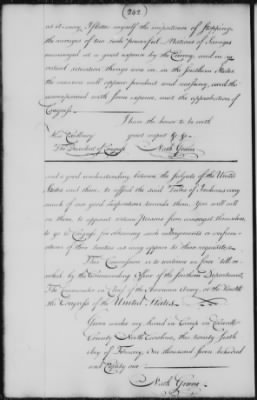 202
as it may, I flatter myself the importance of stopping
the ravages of two such powerful Nations of Savages
encouraged at a great expence by the Enemy, and in so
critical situation things were in in the Southern States
the measure will appear prudent and necessary, and the
unexpected with from expence, meet the approbation of
Congress.
I have the honor to be with
His Excellency great respect &c &c
The President of Congress Nath Greene
and a good understanding between the subjects of the United
States and them. to afford the said Tribes of Indians every
mark of our good dispositions towards them. You will call
on them to appoint certain Persons from amongst themselves,
to go to Congress for obtaining such Engagements or
of their treaties as may appear to them requisite.
This Commission is to continue in force till
by the Commanding Officer of the Southern Department,
The Commander in Chief of the American Army, or the Honble
the Congress of the United States.
Given under my Hand in Camp in
County North Carolina, this twenty sixth
day of February One thousand seven hundred
and Eighty one
Nath Greene